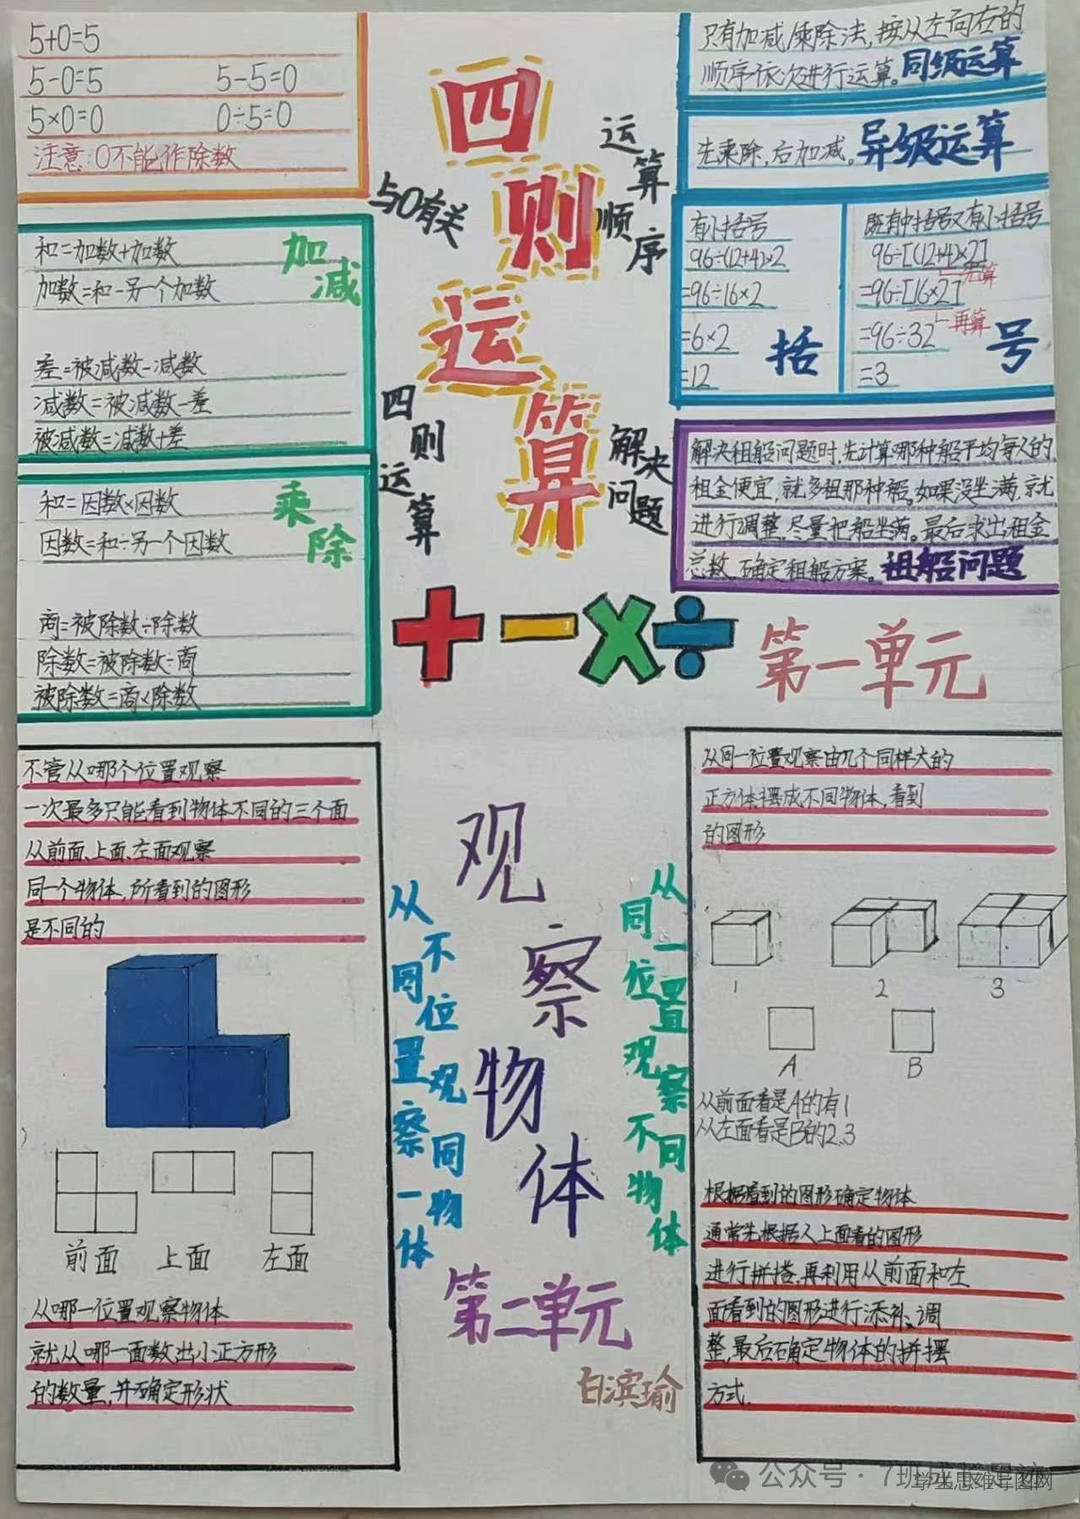 5+0=5
5-0=5 5-5=0
5×0=0 0÷5=0
注意:0不能作除数
与0有关
四则运算
运算顺序
只有加减/乘除法,按从左向右的
顺序依次进行运算。同级运算
先乘除,后加减。异级运算
有小括号
96÷(12+4)×2
=96÷16×2
=6×2
=12
括
既有中括号又有小括号
96÷[(12+4)×2]
先算
=96÷[16×2]
再算
=96÷32
=3
号
和=加数+加数
加数=和-另一个加数
加减
差=被减数-减数
减数=被减数-差
被减数=减数+差
和=因数×因数
因数=和÷另一个因数
乘除
商=被除数÷除数
除数=被除数÷商
被除数=商×除数
四则运算
解决问题
解决租船问题时,先计算哪种船平均每人的
租金便宜,就多租那种船。如果没坐满,就
进行调整,尽量把船坐满。最后求出租金
总数,确定租船方案。租船问题
+-×÷
第一单元
不管从哪个位置观察
一次最多只能看到物体不同的三个面
从前面、上面、左面观察
同一个物体,所看到的图形
是不同的
前面 上面 左面
从哪一位置观察物体
就从哪一面数出小正方形
的数量,并确定形状
从不同位置观察同一物体
观察物体
从同一位置观察不同物体
第二单元
白滨瑜
从同一位置观察由几个同样大的
正方体摆成不同物体,看到
的图形
1 2 3
A B
从前面看是A的有1
从左面看是B的2.3
根据看到的图形确定物体
通常先根据人上面看的图形
进行拼搭,再利用从前面和左
面看到的图形进行添补、调
整,最后确定物体的拼摆
方式.
公众号·7班
学生思维导图网